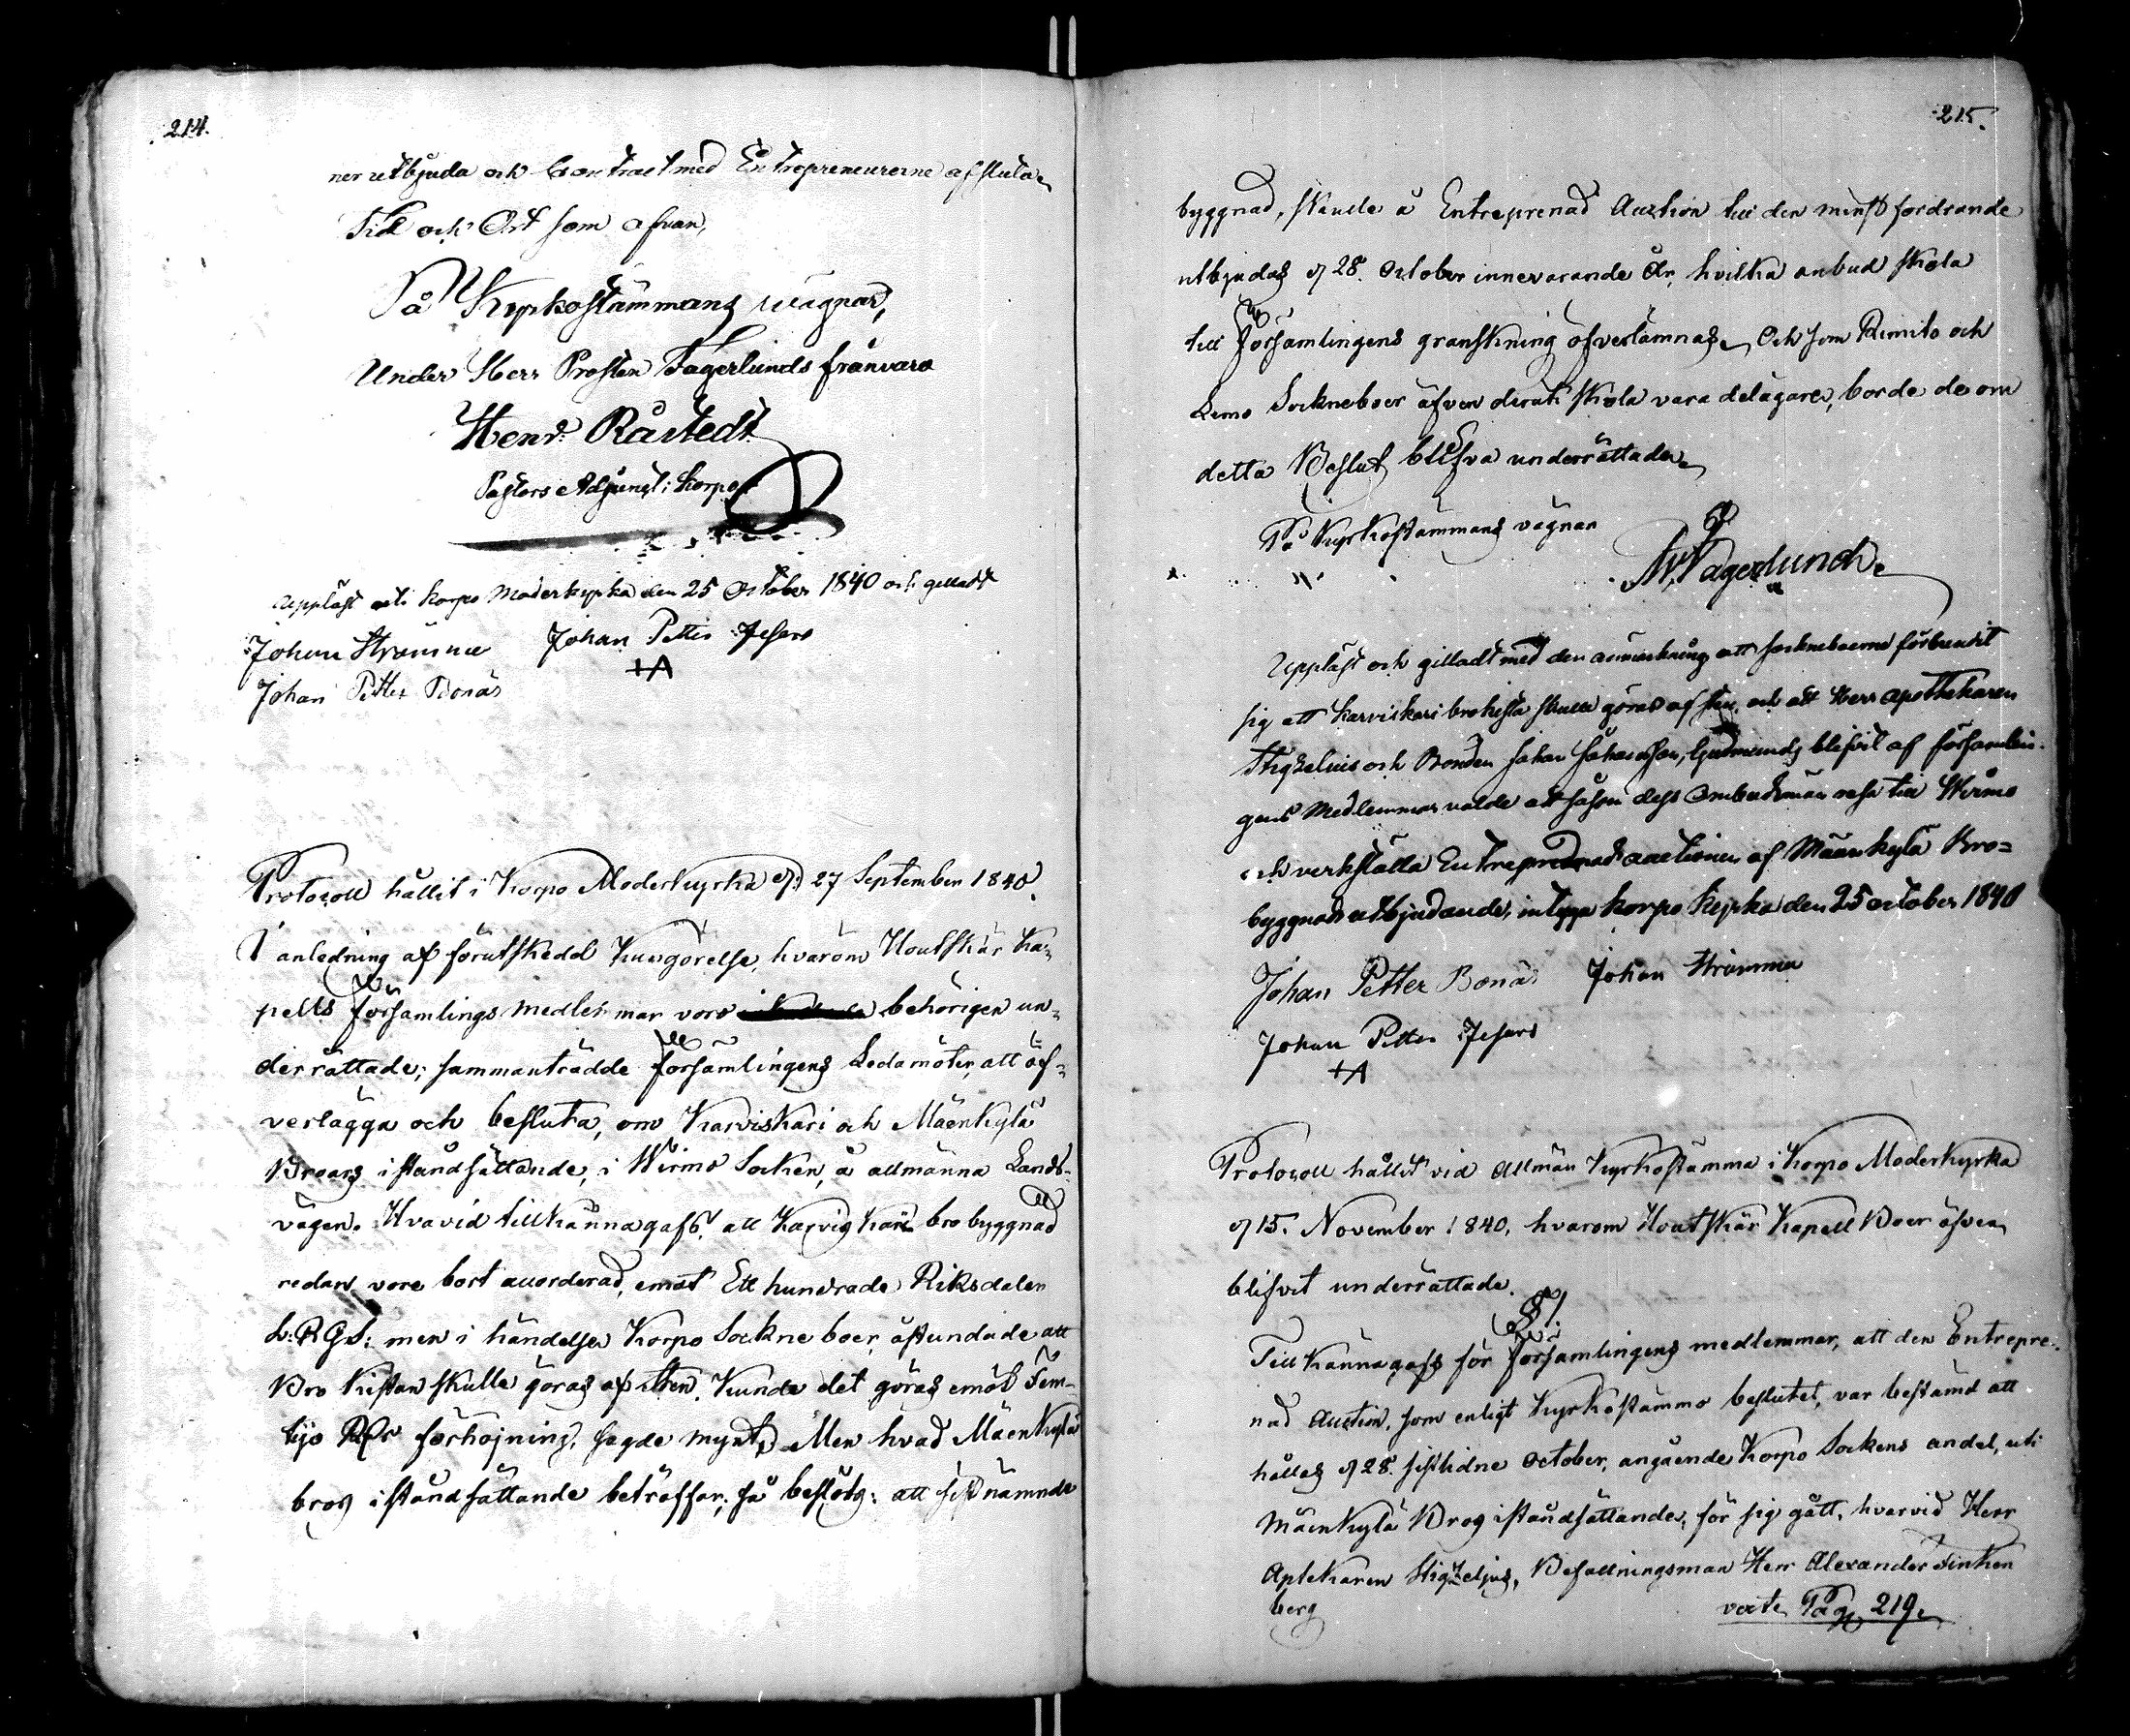 214.
ner utbjuda och Contract med Entrepreneurerne afsluta.
Tid och Ort som ofvan,
På Kyrkostämmans wägnar,
Under Herr Prosten Fagerlunds frånvaro
Hend: Råstedt
Pastors Adjunct i Korpo
Uppläst uti Korpo Moderkyrka den 25 October 1840 och gilladt
Johan Strömma Johan Petter Jesars
Johan Petter Bonäs
Protocoll hållit i Korpo Moderkyrka d: 27 September 1840.
I anledning af förutskedd Kungörelse, hvarom Houtskär Ka-
pells församlings medlemmar voro behörigen un-
derrättade; sammanträdde församlingens Ledamöter, att öf-
verlägga och besluta, om Karviskari och Mäenkylä
Broars iståndsättande, i Wirmo Socken, å allmänna Lands-
vägen. Hvavid tillkännagafs, att Karviskari bro byggnad
redan vore bort accorderad, emot Ett hundrade Riksdaler
S: RGS: men i händelse Korpo Sockneboer åstundade att
Bro Kistan skulle göras af sten, kunde det göras emot Fem-
tijo förhöjning, sagde mynt. Men hvad Mäenkylä
bros iståndsättande beträffar; så beslöts: att sistnämnde
215.
byggnad, skulle å Entreprenad Auction till den minst fordrande
utbjudas d 28. October innevarande år, hvilka anbud skola
till församlingens granskning öfverlämnas. Och som Rimito och
Lemo Sockneboer äfven deruti skola vara delägare, borde de om
detta Beslut blifva underrättade.
På Kyrkostämmans vägnar
Fagerlund.
Uppläst och gilladt med den anmärkning att sockneboerne förbundit
sig att Karviskari brokista skulle göras af sten, och att Herr Apothekaren
Stigzelius och Bonden Johan Johansson, Gudmunds blifvit af församlin-
gens Medlemmar valde att såsom dess Ombudsmän resa till Wirmo
och verkställa Entreprenad auctionen af Mäenkylä Bro-
byggnads utbjudande, intyga Korpo Kyrka den 25 october 1840
Johan Petter Bonäs Johan Strömma
Johan Petter Jesars
Protocoll hållit vid Allmän Kyrkostämma i Korpo Moderkyrka
d 15. November 1840, hvarom Houtskär Kapell Boer äfven
blifvit underrättade.
§ 1.
Till kännagafs för församlingens medlemmar, att den Entrepre-
nad Auction, som enligt Kyrkostämmo beslutet, var bestämd att
hållas d 28. sistlidne October, angående Korpo Sockens andel, uti
Mäenkylä Bros iståndsättande, för sig gått, hvarvid Herr
Aptekaren Stigzelius, Befallningsman Herr Alexander Finken
berg
verte Pag 219.